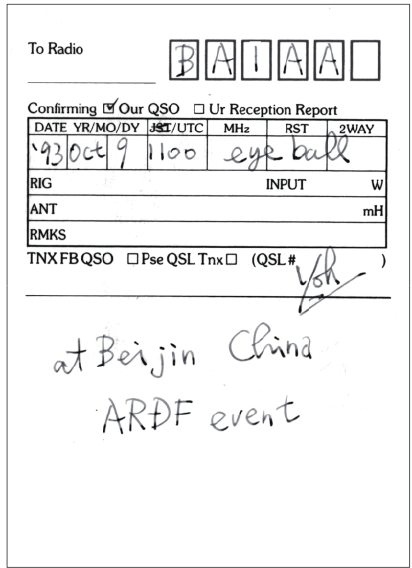 To Radio BA1AA
Confirming ☑ Our QSO □ Ur Reception Report
DATE YR/MO/DY JST/UTC MHz RST 2WAY
'93 Oct 9 1100 eye ball
RIG INPUT W
ANT mH
RMKS
TNX FB QSO □ Pse QSL Tnx □ (QSL# )
at Beijin China
ARDF event